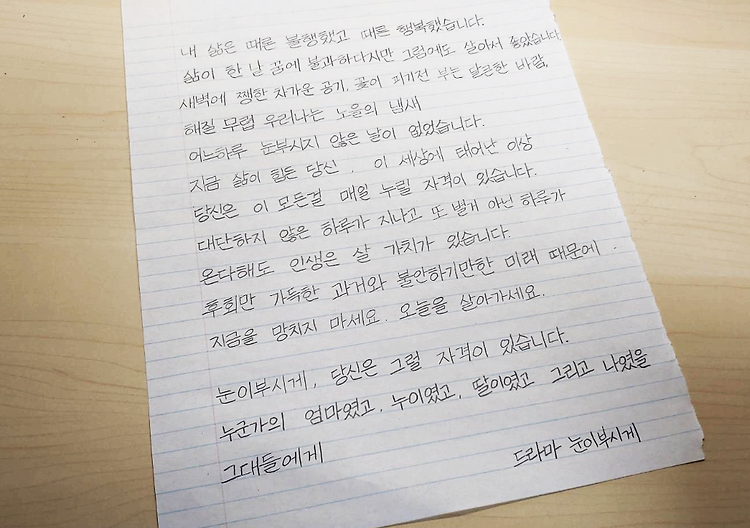 내 삶은 때론 불행했고 때론 행복했습니다.
삶이 한 낱 꿈에 불과하다지만 그럼에도 살아서 좋았습니다.
새벽에 쨍한 차가운 공기, 꽃이 피기전 부는 달큰한 바람,
해질 무렵 우러나는 노을의 냄새
어느하루 눈부시지 않은 날이 없었습니다.
지금 삶이 힘든 당신, 이 세상에 태어난 이상
당신은 이 모든걸 매일 누릴 자격이 있습니다.
대단하지 않은 하루가 지나고 또 별게 아닌 하루가
온다해도 인생은 살 가치가 있습니다.
후회만 가득한 과거와 불안하기만한 미래 때문에.
지금을 망치지 마세요. 오늘을 살아가세요.
눈이부시게, 당신은 그럴 자격이 있습니다.
누군가의 엄마였고, 누이였고, 딸이였고 그리고 나였을
그대들에게
드라마 눈이부시게